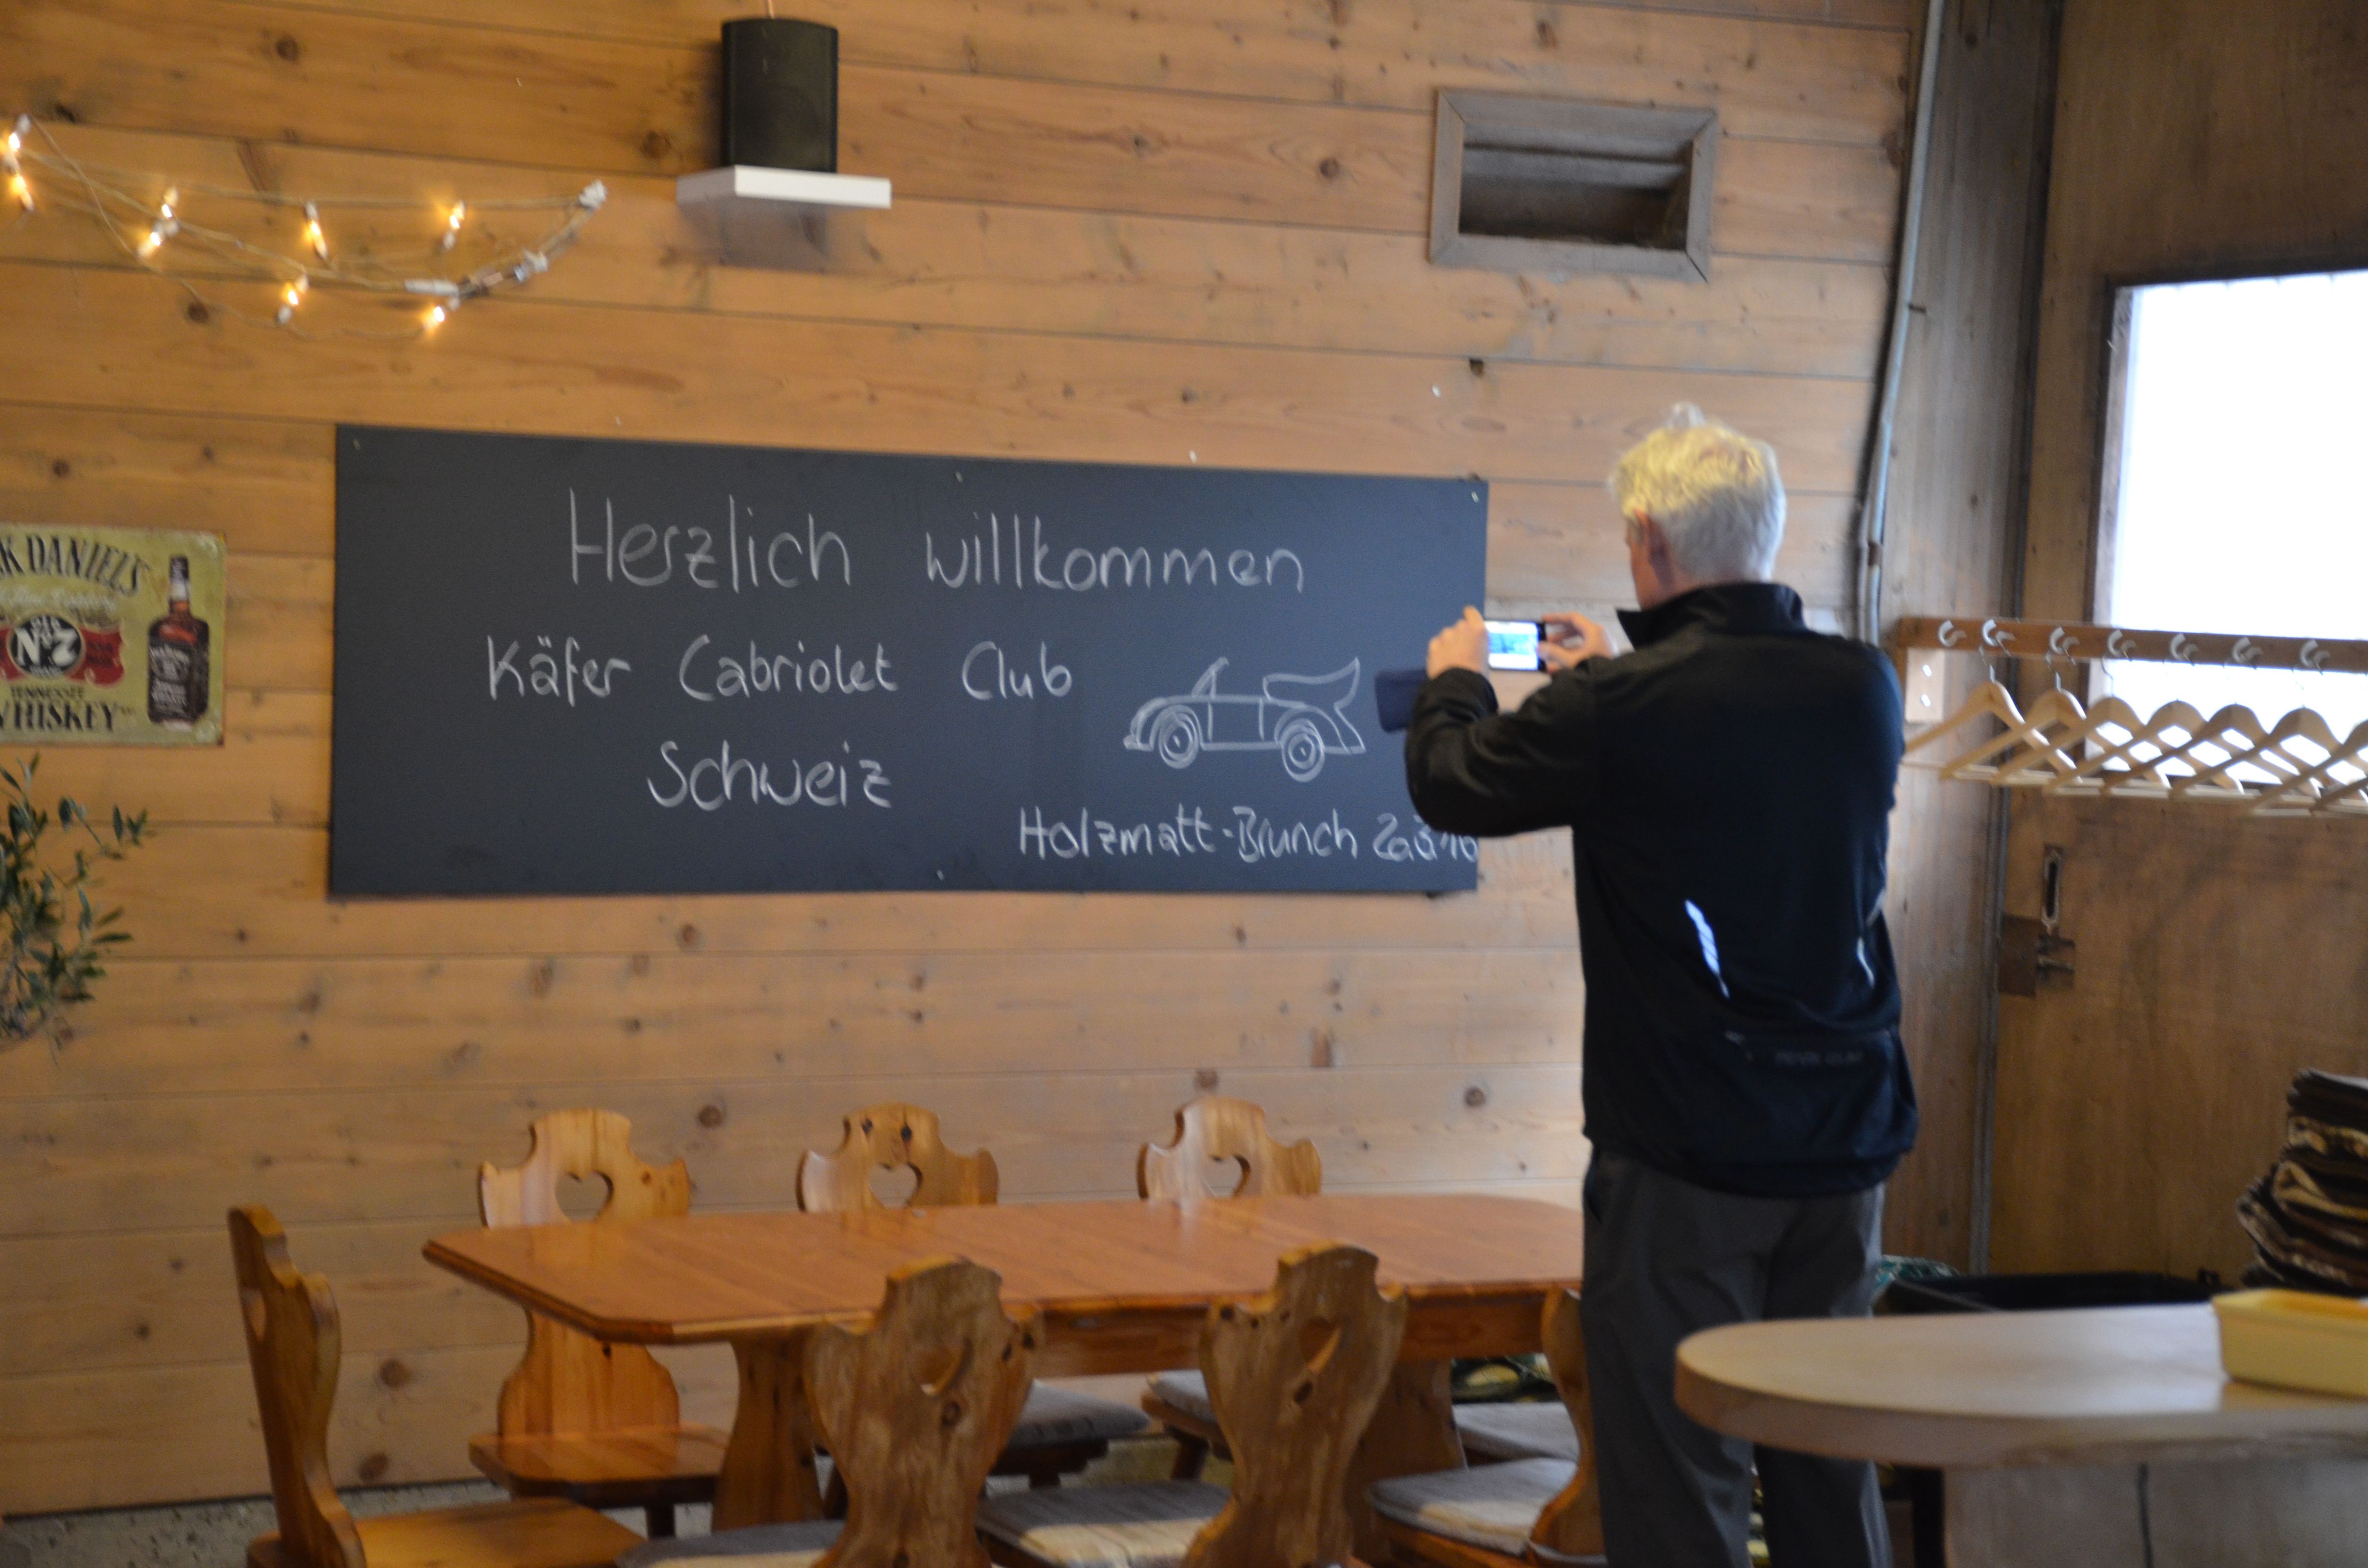 Herzlich willkommen
Käfer Cabriolet Club
Schweiz
Holzmatt-Brunch
DANIEL'S
No 7
TENNESSEE
WHISKEY